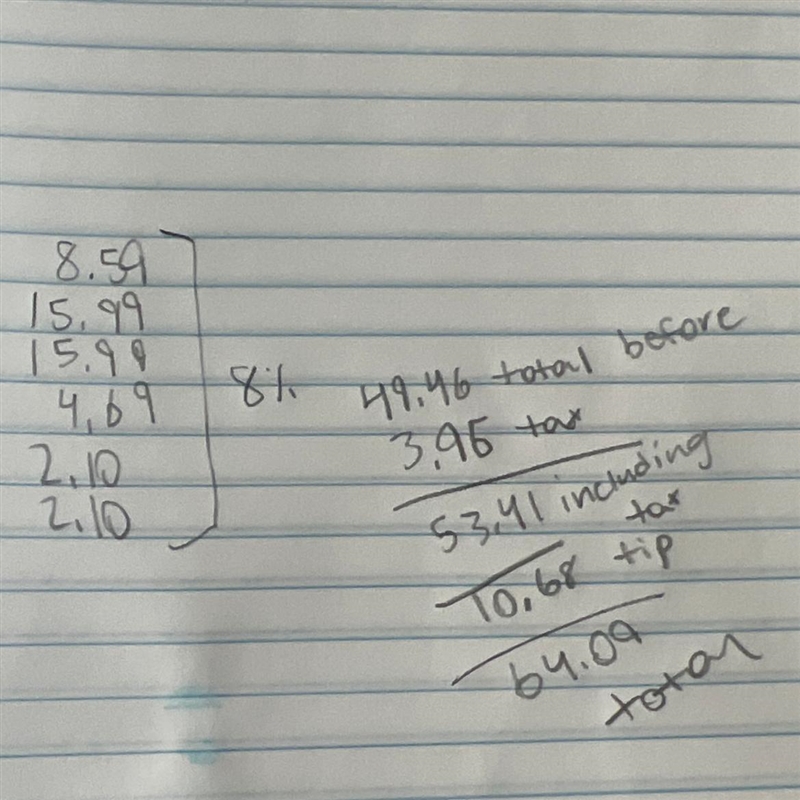 8.59
15.99
15.99
4.69
2.10
2.10
8%
49.46 total before
3.95 tax
53.41 including
tax
10.68 tip
64.09
total